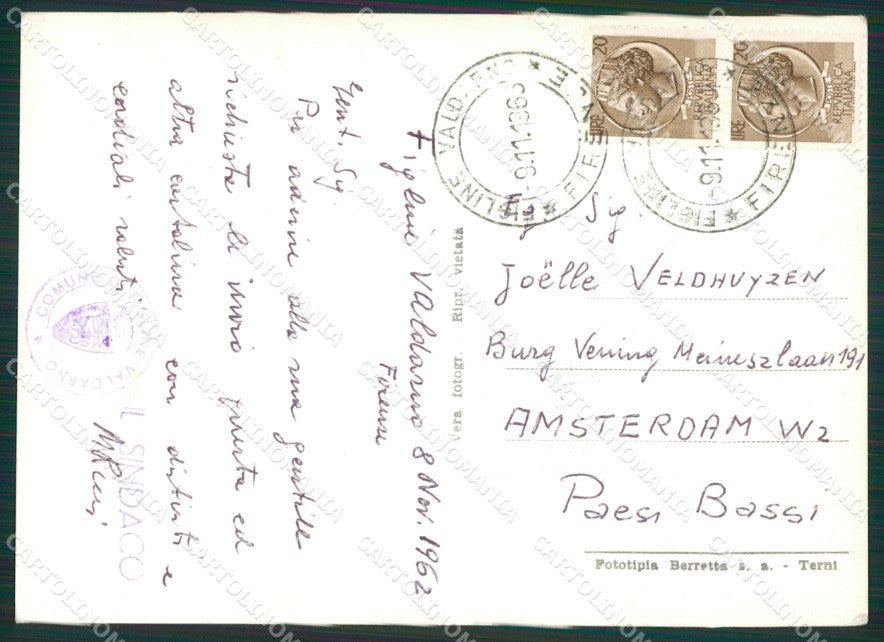 Figline Valdarno 8 Nov. 1962
Firenze
Gent. Sig.
Per aderire alla sua gentile
richiesta le invio questa ed
altra cartolina con distinti e
cordiali saluti
IL SINDACO
COMUNE FIGLINE VALDARNO
Vera fotogr. Ripr. vietata
FIGLINE VALDARNO * FIRENZE *
-9.11.196
FIGLINE * FIRENZE
-9.11.1
LIRE 20 REPVBBLICA ITALIANA
LIRE 20 REPVBBLICA ITALIANA
Sig.
Joëlle VELDHUYZEN
Burg Vening Meineszlaan 191
AMSTERDAM W2
Paesi Bassi
Fototipia Berretta s. a. - Terni
CARTOLINOMANIA